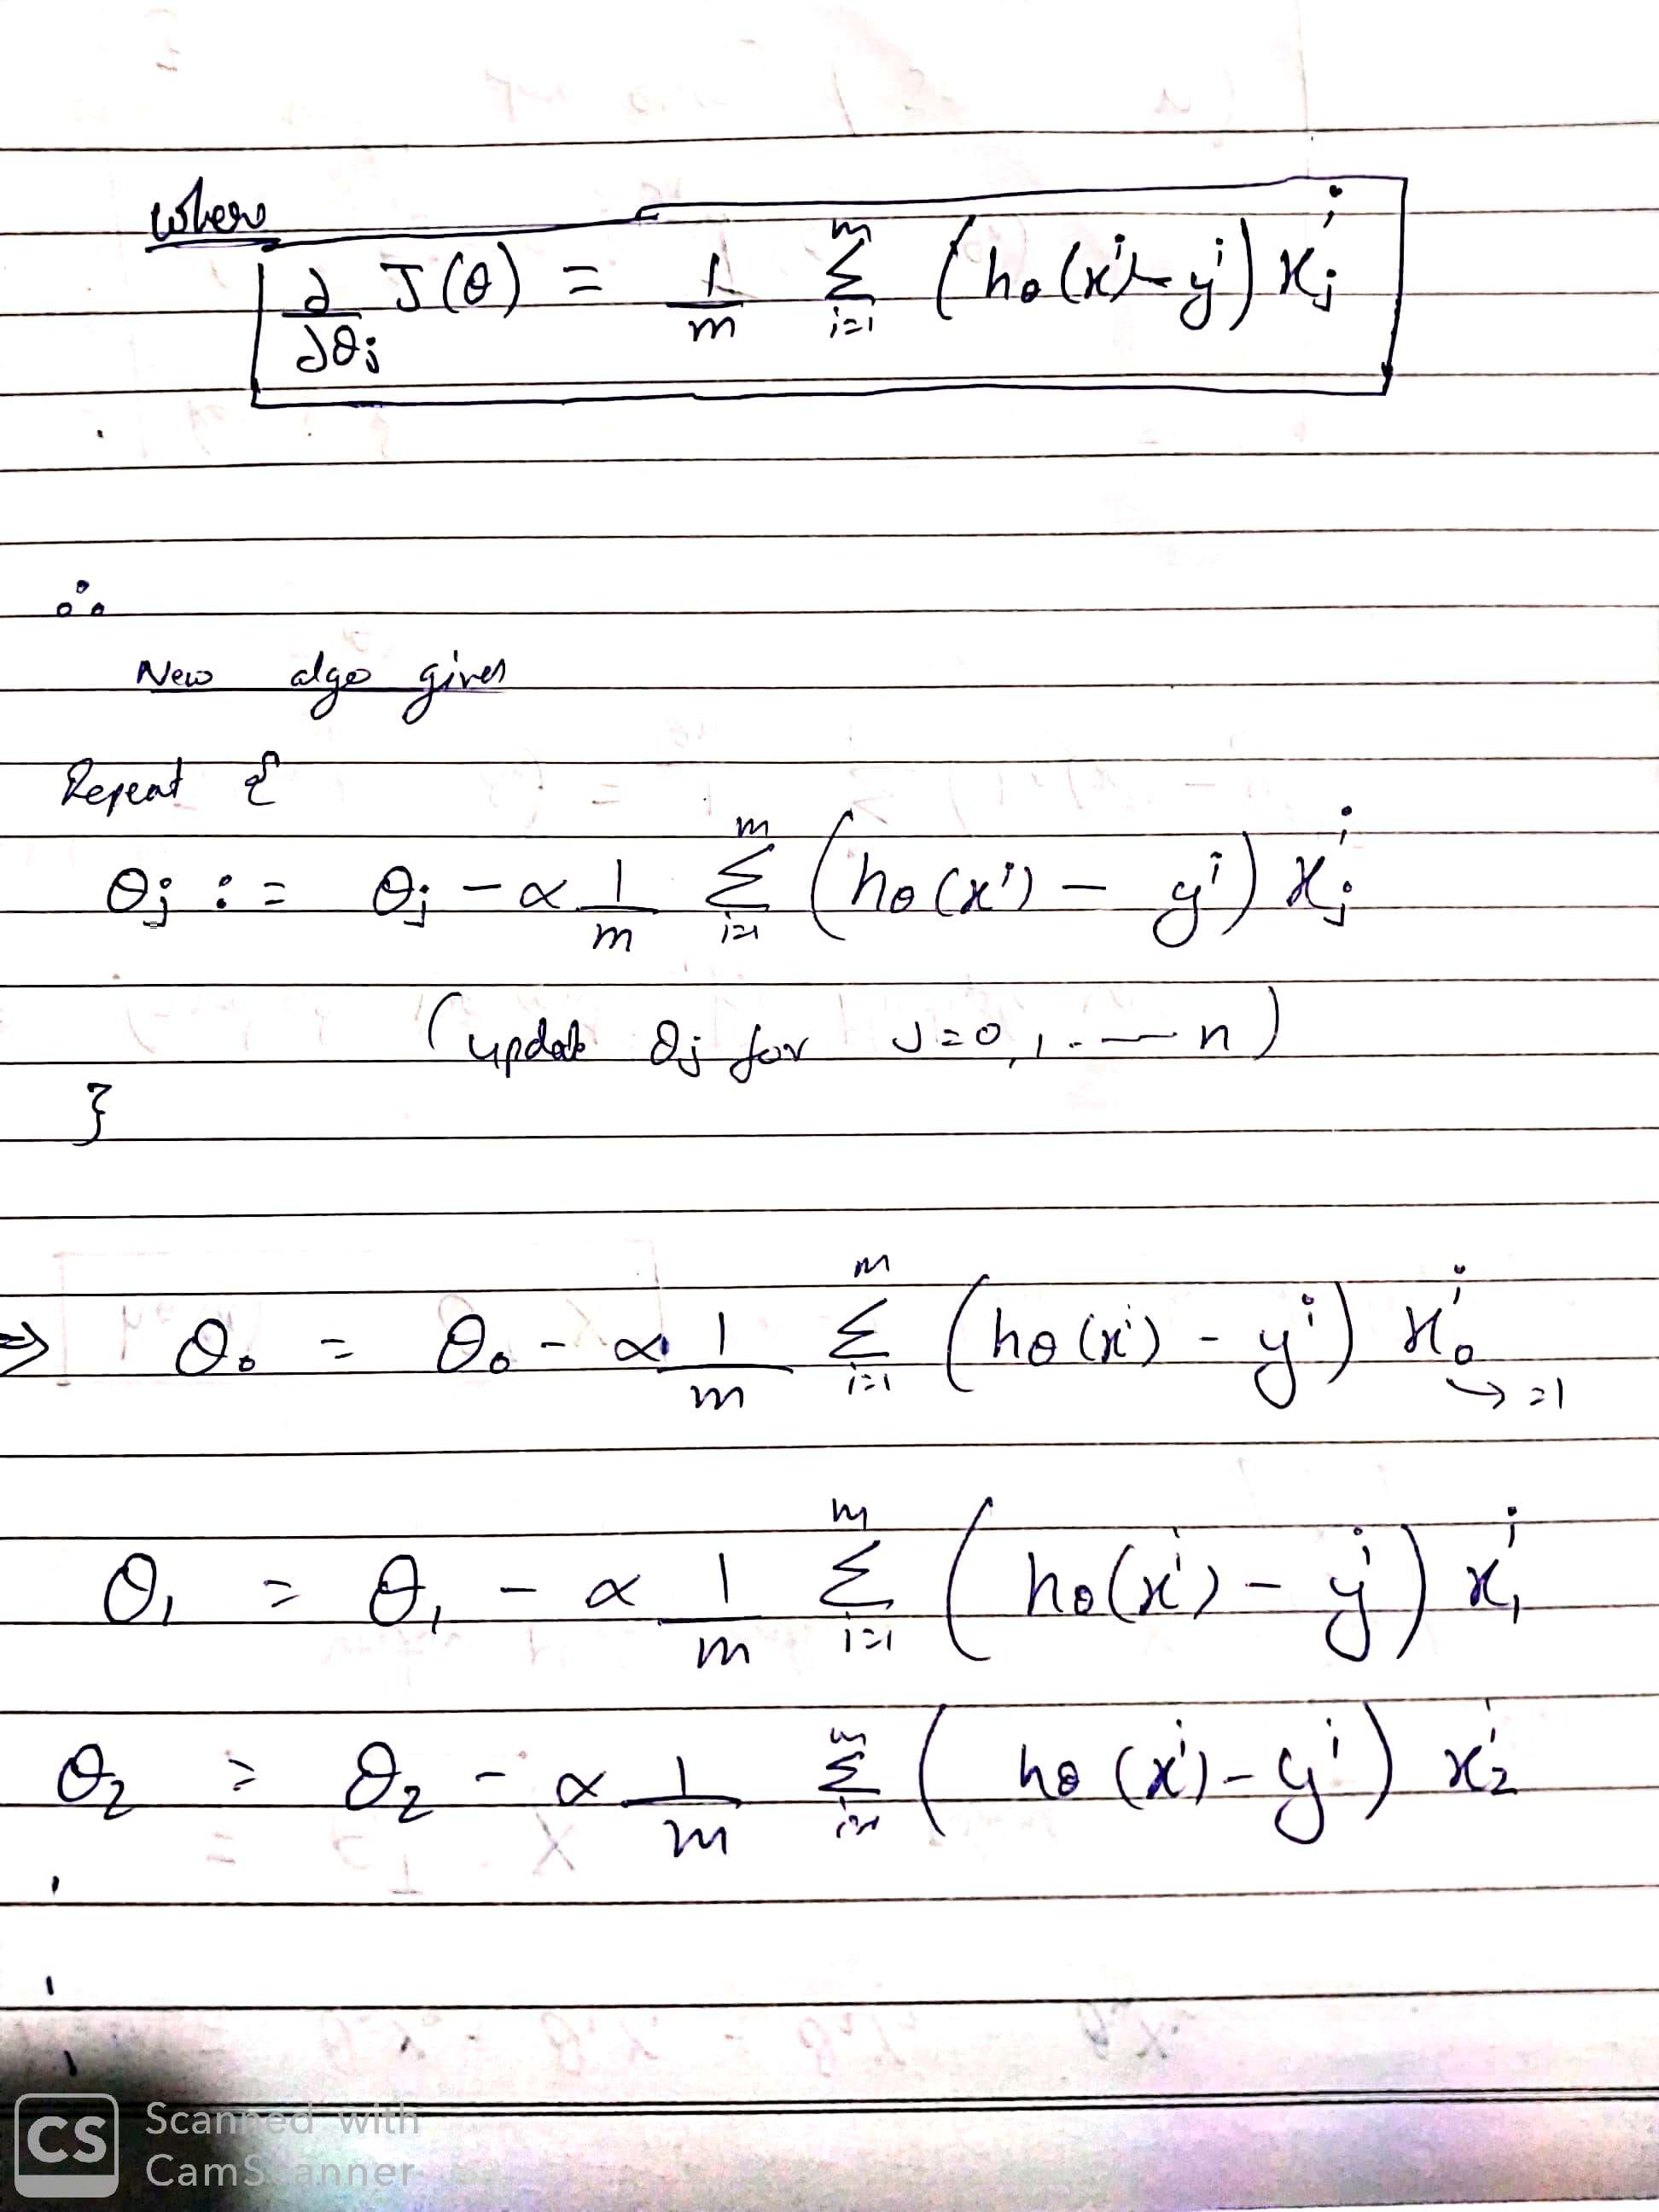 where
∂/∂θj J(θ) = 1/m Σ_{i=1}^{m} (hθ(x^i) - y^i) x_j^i
∴
New algo gives
Repeat {
θj := θj - α 1/m Σ_{i=1}^{m} (hθ(x^i) - y^i) x_j^i
(update θj for J=0,1.--n)
}
⇒ θ₀ = θ₀ - α 1/m Σ_{i=1}^{m} (hθ(x^i) - y^i) x_0^i → =1
θ₁ = θ₁ - α 1/m Σ_{i=1}^{m} (hθ(x^i) - y^i) x_1^i
θ₂ = θ₂ - α 1/m Σ_{i=1}^{m} (hθ(x^i) - y^i) x_2^i
CS Scanned with
CamScanner